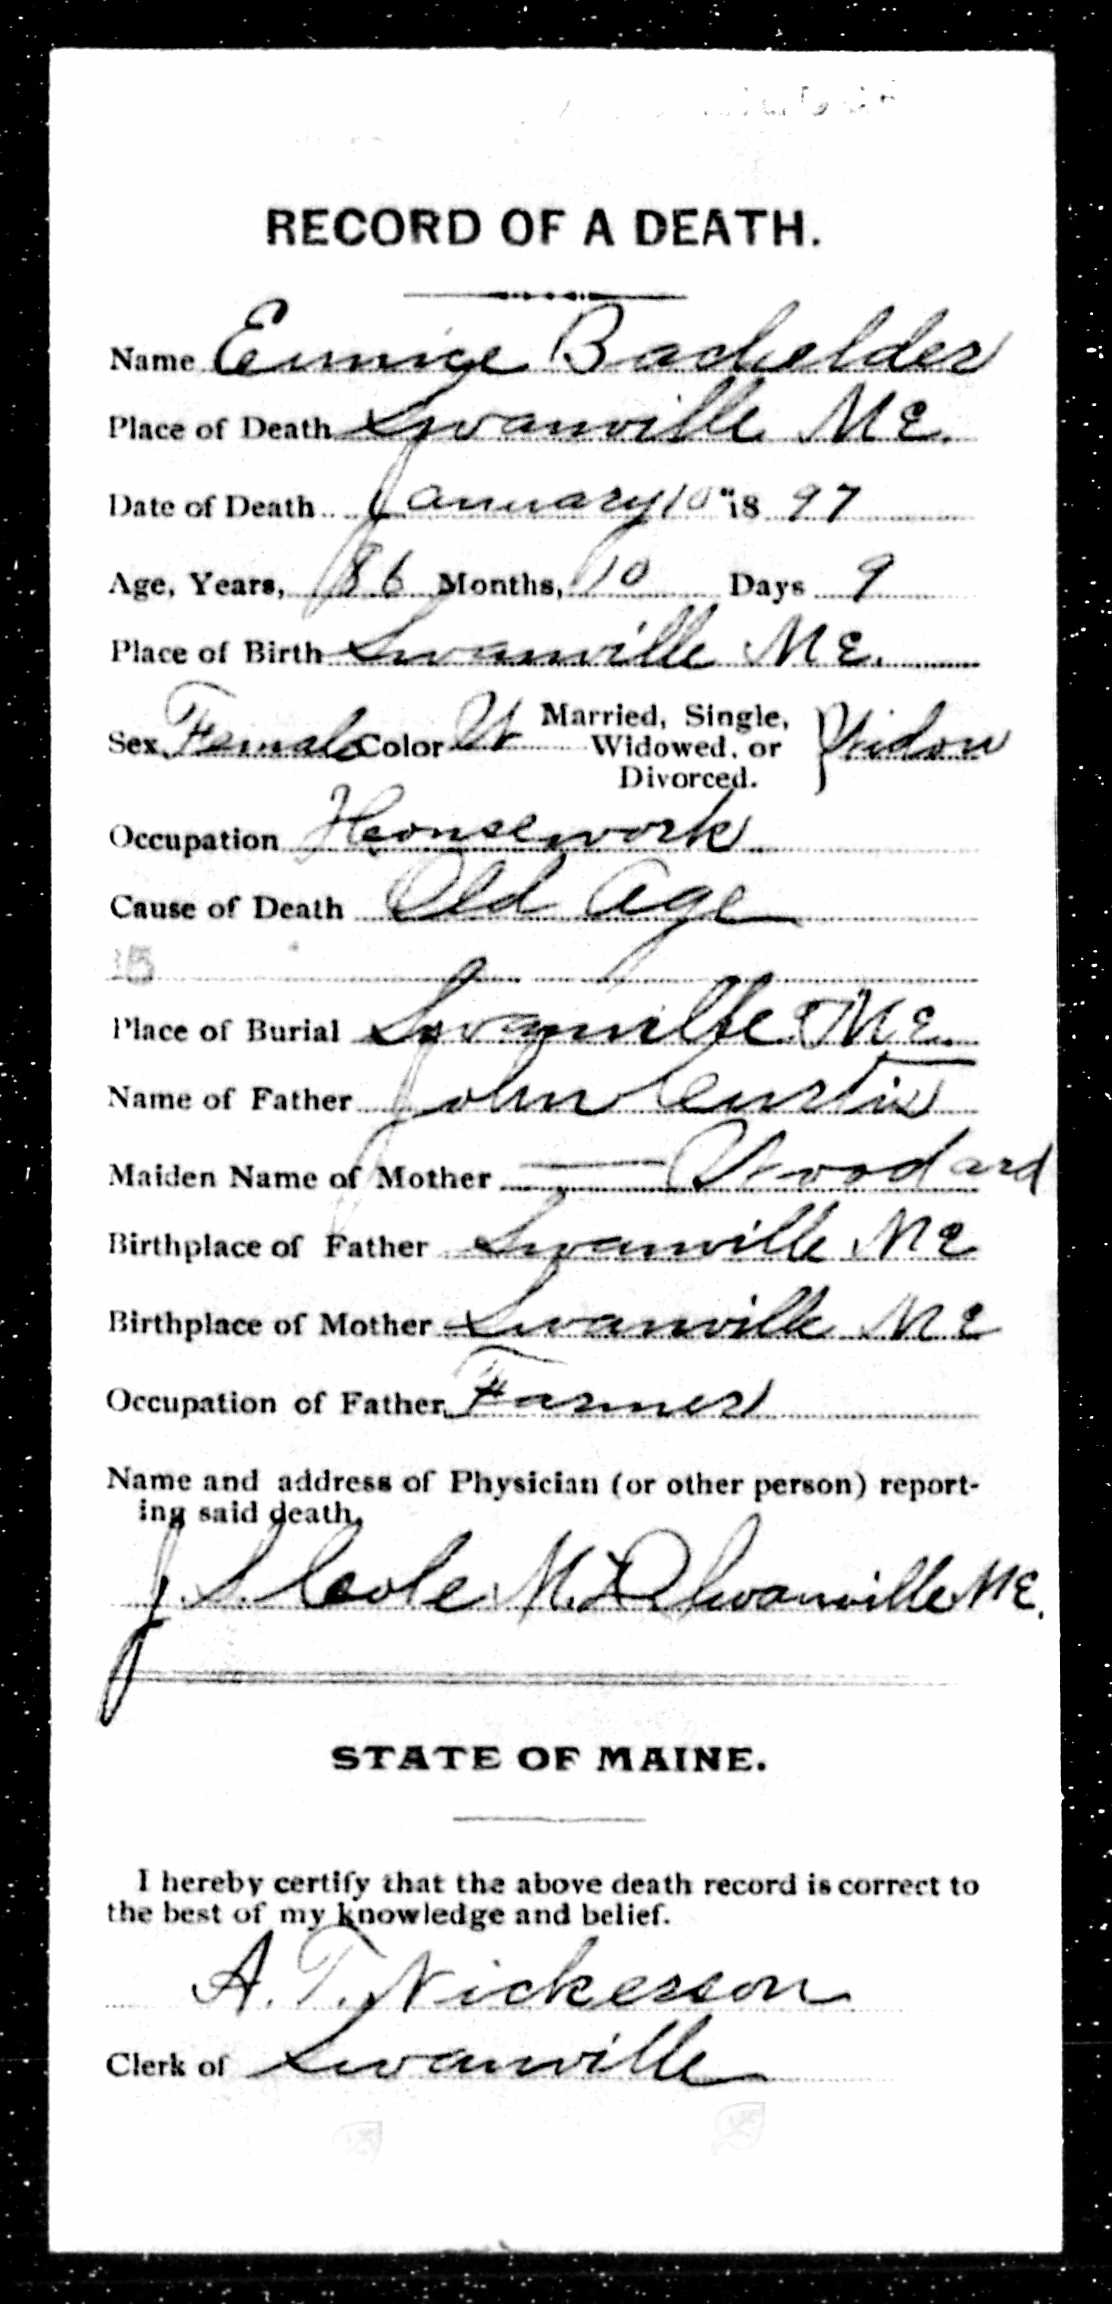 RECORD OF A DEATH.
Name Eunice Bachelder
Place of Death Swanville ME.
Date of Death January 10" 18 97
Age, Years, 86 Months, 10 Days 9
Place of Birth Swanville ME.
Sex Female Color W Married, Single, Widowed, or Divorced. } Widow
Occupation Housework
Cause of Death Old Age
15
Place of Burial Swanville ME.
Name of Father John Curtis
Maiden Name of Mother — Woodard
Birthplace of Father Swanville ME
Birthplace of Mother Swanville ME
Occupation of Father Farmer
Name and address of Physician (or other person) report-
ing said death,
J. S. Cole M.D. Swanville ME.
STATE OF MAINE.
I hereby certify that the above death record is correct to
the best of my knowledge and belief.
A. T. Nickerson
Clerk of Swanville